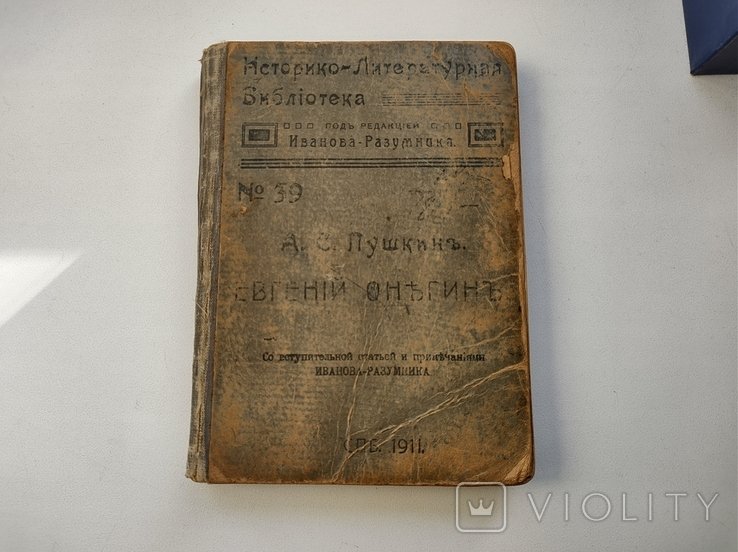 Историко-Литературная
Библіотека
подъ редакціей
Иванова-Разумника.
№ 39
А. С. Пушкинъ.
ЕВГЕНІЙ ОНѢГИНЪ
Со вступительной статьей и примѣчаніями
ИВАНОВА-РАЗУМНИКА
СПБ. 1911.
VIOLITY